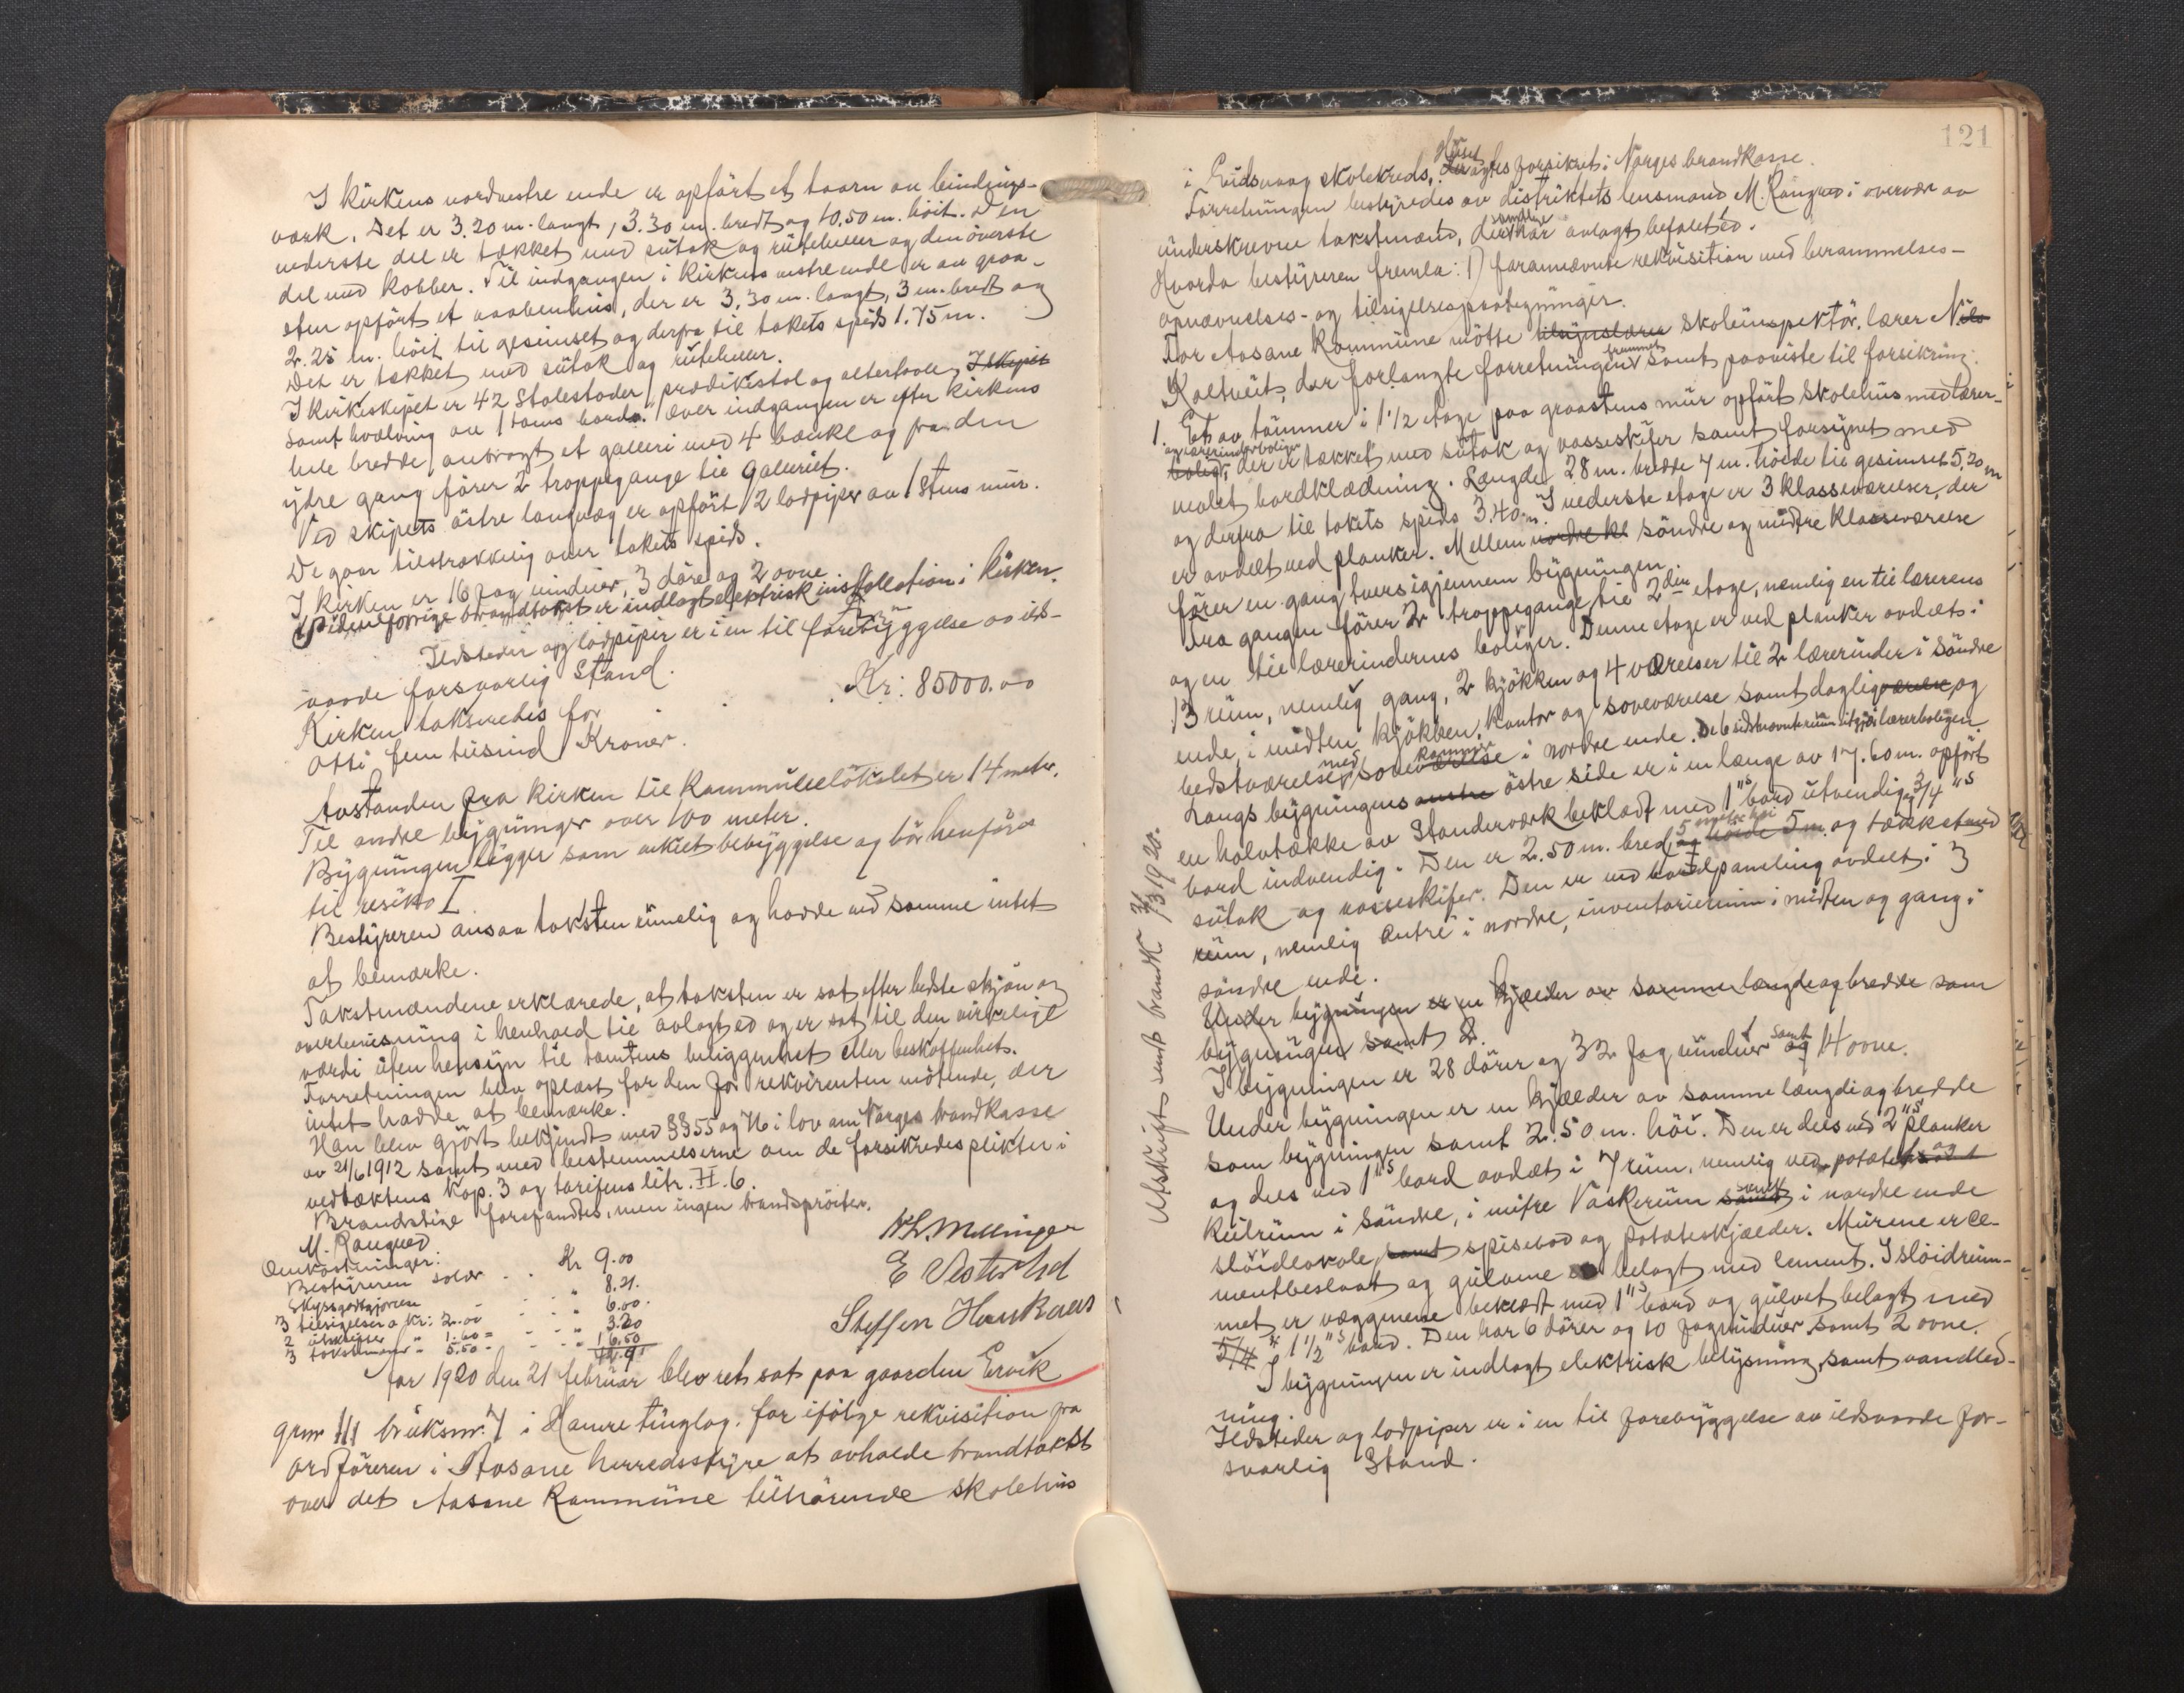 I kirkens nordvestre ende er opført et taarn av bindings-
værk. Det er 3.20 m. langt, 3.30 m. bredt og 10,50 m. høit. Den
nederste del er tækket med sutak og ruteheller og den øverste
del med kobber. Til indgangen i kirkens vestre ende er av graa-
sten opført et vaabenhus, der er 3.30 m. langt, 3 m. bredt og
2.25 m. høit til gesimset og derfra til takets spids 1.75 m.
Det er tækket med sutak og ruteheller.
I kirkeskipet er 42 Stolestader, prædikestol og altertavle, I skipet
samt hvælving av 1 toms bords. Over indgangen er efter kirkens
hele bredde anbragt et galleri med 4 bænke og fra den
ydre gang fører 2 trappegange til galleriet.
Ved skipets østre langvæg er opført 2 lodpiper av 1 Stens mur.
De gaar tilstrækkelig over takets spids.
I kirken er 16 fag vinduer, 3 døre og 2 ovne.
Siden forrige brandtakst er indlagt elektrisk installation i kirken.
Ildsteder og lodpiper er i en til forebyggelse av ilds-
vaade forsvarlig Stand.
Kirken takseredes for . . . Kr: 85000.00
Otti fem tusind Kroner.
Avstanden fra kirken til kommunelokalet er 14 meter.
Til andre bygninger over 100 meter.
Bygningen ligger som enkelt bebyggelse og bør henføres
til resiko I
Bestyreren ansaa taksten rimelig og hadde ved samme intet
at bemærke.
Takstmændene erklærede, at taksten er sat efter bedste skjøn og
overbevisning i henhold til avlagt ed og er sat til den virkelige
værdi uten hensyn til tomtens beliggenhet eller beskaffenhet.
Forretningen blev oplæst for den for rekvirenten møtende, der
intet hadde at bemærke.
Han blev gjort bekjendt med §§ 55 og 76 i lov om Norges brandkasse
av 21/6 1912 samt med bestemmelserne om de forsikredes plikter i
vedtæktens kap. 3 og tarifens litr. H. 6.
Brandstige forefandtes, men ingen brandsprøiter.
M. Rangnød. H L. Mellinger
Omkostninger: E Vesterlid
Bestyreren salær . . Kr 9.00
Skyssgodtgjørelse - . . " 8.21.
3 tilsigelser a kr: 2.00 - . . " 6.00. Steffen Haukaas
2 utskrifter " 1.60 = - . . " 3.20
3 takstmænd " 5.50 = - . . " 16.50
42.91
Aar 1920 den 21 februar blev ret sat paa gaarden Ervik
grnr 111 bruksnr. 7 i Hamre tinglag. for ifølge rekvisition fra
ordføreren i Aasane herredsstyre at avholde brandtakst
over det Aasane Kommune tilhørende skolehus
121
i Eidsvaag skolekreds, Huset der agtes forsikret i Norges brandkasse.
Forretningen bestyredes av distriktets lensmand M. Rangnød i overvær av
underskrevne takstmænd, der samtlige har avlagt befalet ed.
Hvorda bestyreren fremla: 1) foranævnte rekvisition med berammelses-
opnævnelses- og tilsigelsespaategninger.
For Aasane kommune møtte tilsynslærer skoleinspektør, lærer Nils
Kaltveit, der forlangte forretningen fremmet samt paaviste til forsikring:
1. Et av tømmer i 1 1/2 etage paa graastens mur opført skolehus med lærer-
og lærerindeboliger
bolig, der er tækket med sutak og vosseskifer samt forsynet med
malet bordklædning. Længde 28 m. bredde 7 m. høide til gesimset 5,20 m
og derfra til takets spids 3.40 m. I nederste etage er 3 klasseværelser, der
er avdelt ved planker. Mellem nordre kl søndre og midtre klasseværelse
fører en gang tvers igjennem bygningen.
Fra gangen fører 2 trappegange til 2den etage, nemlig en til lærerens
og en til lærerindernes boliger. Denne etage er ved planker avdelt i
13 rum, nemlig gang, 2 kjøkken og 4 værelser til 2 lærerinder i søndre
ende, i midten kjøkken, kontor og soveværelse samt dagligværelse og
bedstværelse med soveværelse kammer i nordre ende. De 6 sidstnævnte rum utgjør lærerboligen.
Langs bygningens østre side er i en længe av 17.60 m. opført
en halvtække av Standerværk beklædt med 1"s bord utvendig og 3/4 "s
bord indvendig. Den er 2.50 m. bred, 5 meter høi og høide 5 m. og tækket med
sutak og vosseskifer. Den er ved bordpaneling avdelt i 3
rum, nemlig Entre i nordre, inventarierum i midten og gang i
søndre ende.
Under bygningen er en kjælder av samme længde og bredde som
bygningen samt 2.
I bygningen er 28 dører og 32 fag vinduer samt og 14 ovne.
Under bygningen er en kjælder av samme længde og bredde
som bygningen samt 2.50 m. høi. Den er dels ved 2"s planker
og dels ved 1"s bord avdelt i 7 rum, nemlig ved og
kulrum i søndre, i midtre Vaskerum samt i nordre ende
sløidlokale, samt spisebod og potateskjælder. Murene er ce-
mentbeslaat og gulvene belagt med cement. I sløidrum-
met er væggene beklædt med 1"s bord og gulvet belagt med
5/4 " 1 1/2 "s bord. Den har 6 dører og 10 fag vinduer samt 2 ovne.
I bygningen er indlagt elektrisk belysning samt vandled-
ning.
Ildsteder og lodpiper er i en til forebyggelse av ildsvaade for-
svarlig Stand.
Utskrift sendt brandk 3/3 1920.